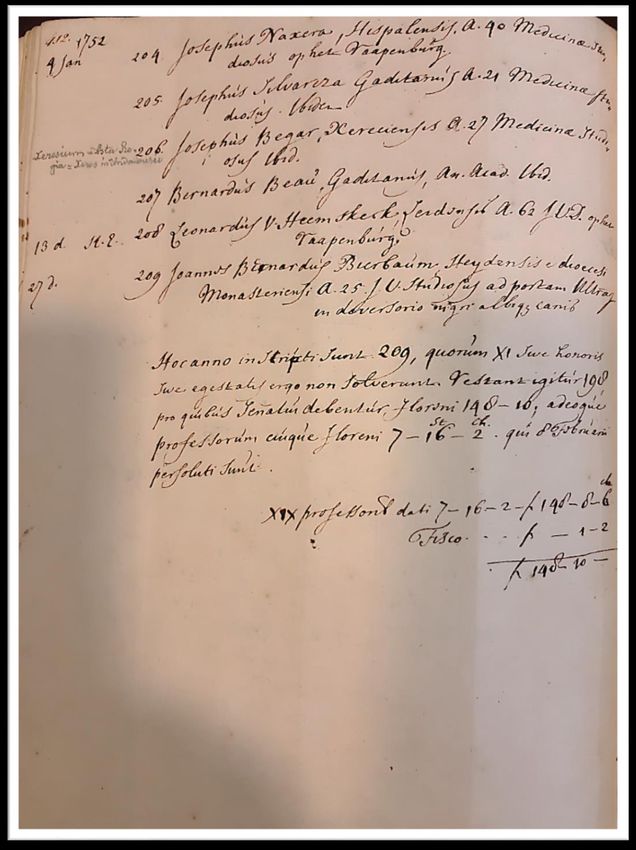 1752
4 Jan
204. Josephus Naxera, Hispalensis, A. 40 Medicinæ Stu-
diosus op het Raapenburg.
205. Josephus Silvareza Gaditanus A. 21 Medicinæ Stu-
diosus. Ibidem
206. Josephus Begar, Xereciensis A. 27 Medicinæ Studi-
osus Ibid.
207 Bernardus Beau, Gaditanus, An. Acad. Ibid.
13 d. H.E. 208 Leonardus V. Heemskerk Leidensis A. 62 J.U.D. op het
Raapenburg.
27 d. 209 Joannes Bernardus Buerbaum, Heydensis e diœcesi
Monasteriensi A. 25 J.U. Studiosus ad portam Ultraj
in diversorio nigri albiq canis
Hoc anno inscripti sunt 209, quorum XI sive honoris
sive egestatis ergo non solverunt. Restant igitur 198
pro quibus Senatui debentur, floreni 148-10, adeoque
professorum cuique floreni 7-16-2. qui 8 Februarii
St. Ch.
persoluti sunt.
XIX professorib dati 7-16-2 - f 148-8-6
Fisco - - - f - 1-2
f 148-10-